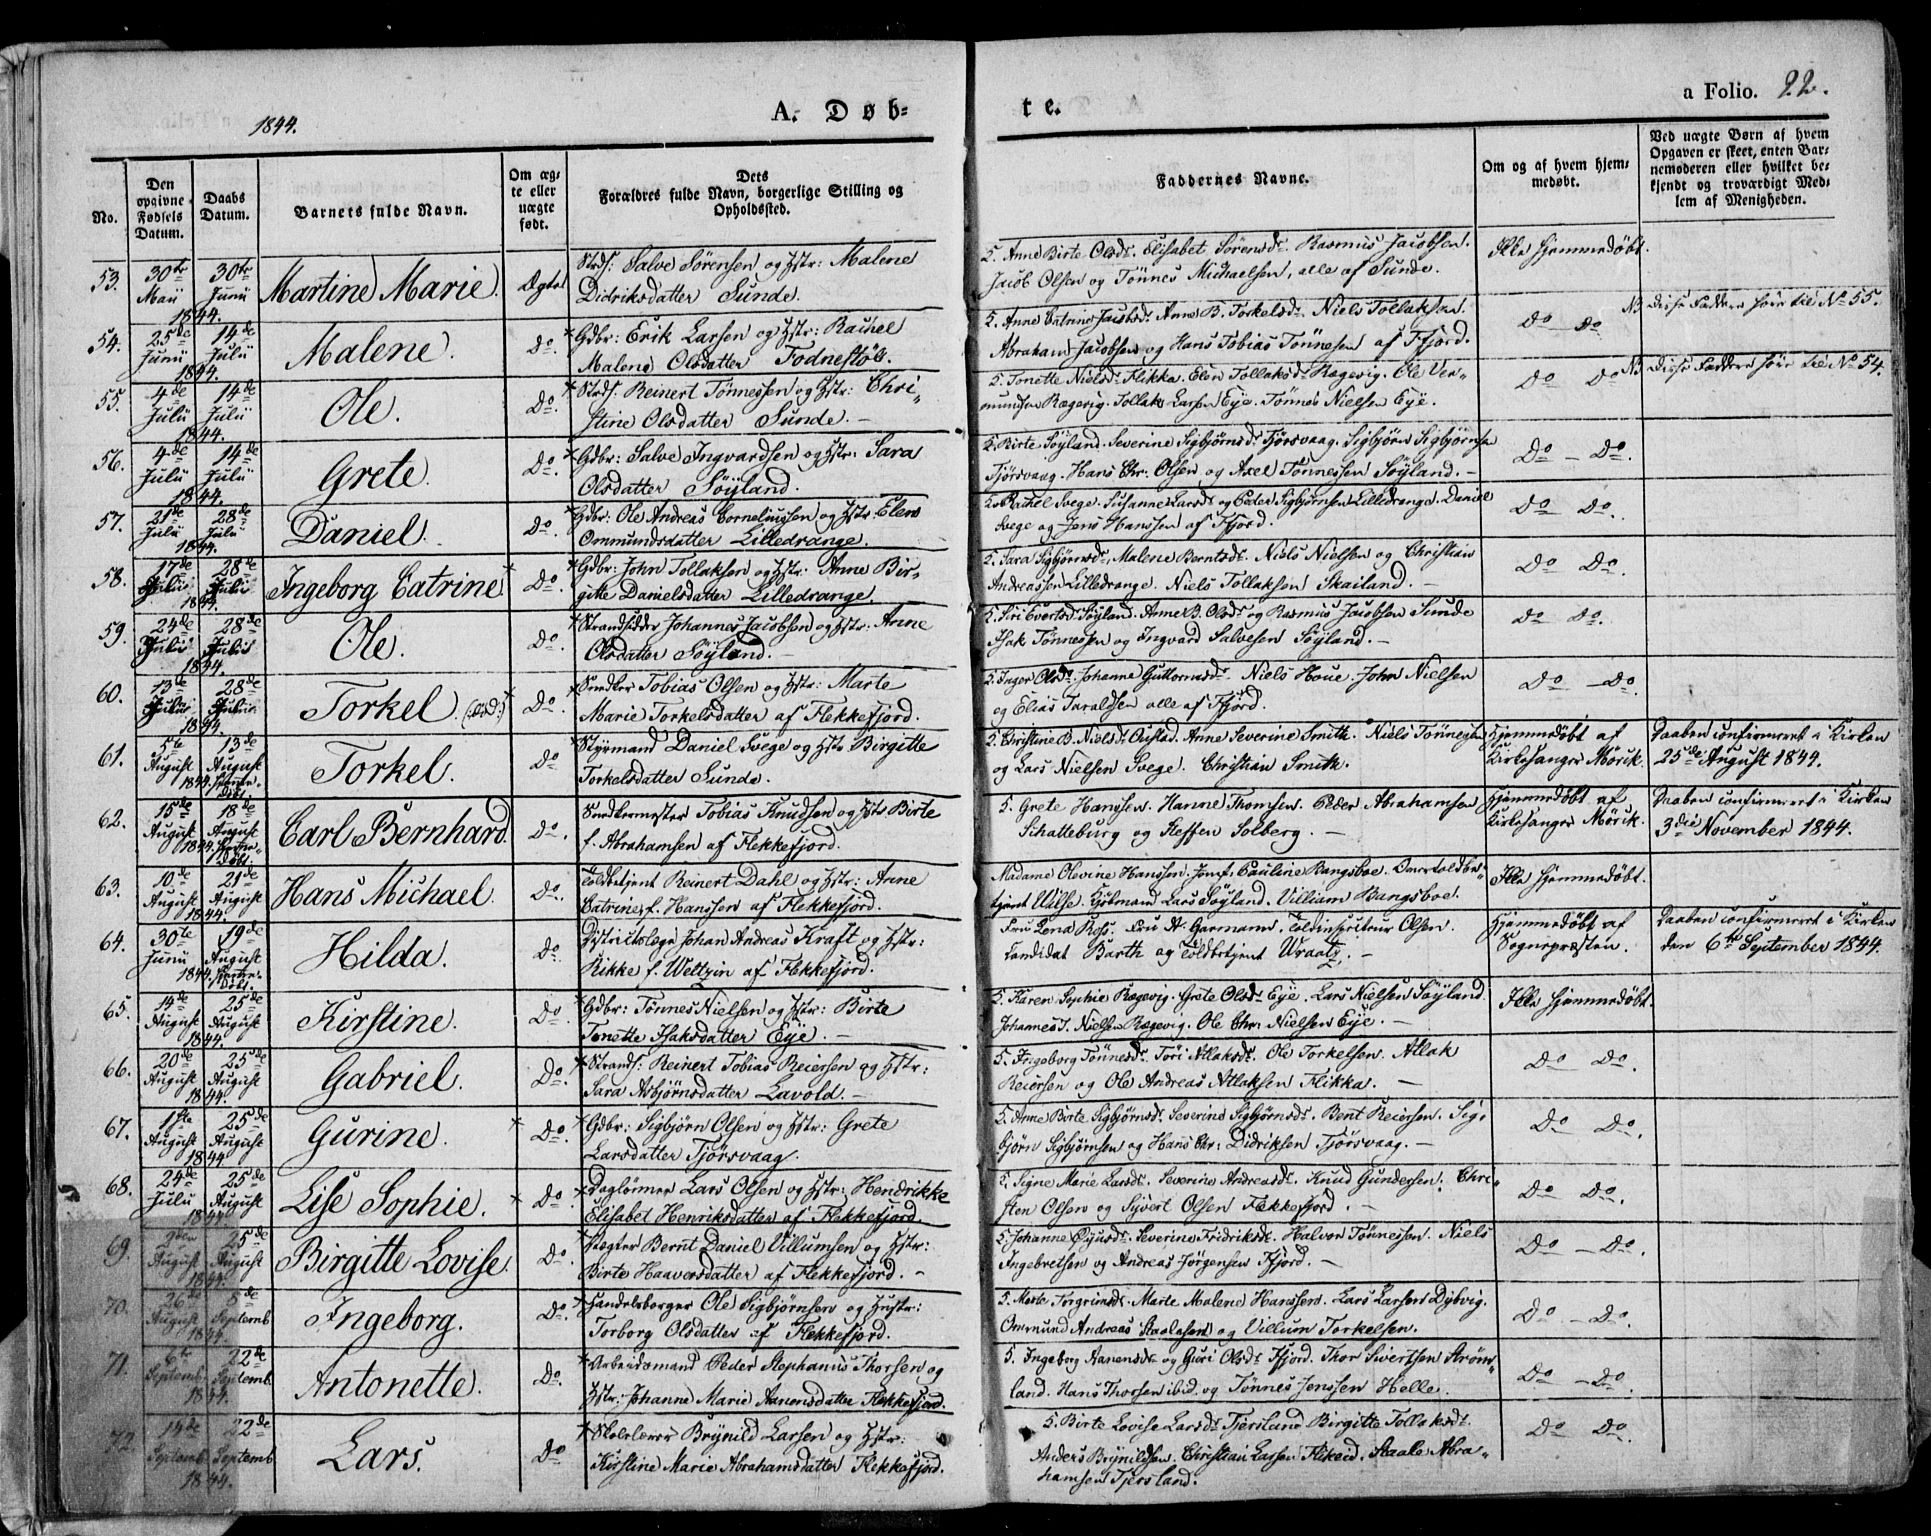 1844.
A. Døb-
te.
a Folio. 22.
No.
Den opgivne Fødsels Datum.
Daabs Datum.
Barnets fulde Navn.
Om ægte eller uægte født.
Dets Forældres fulde Navn, borgerlige Stilling og Opholdssted.
Faddernes Navne.
Om og af hvem hjemmedøbt.
Ved uægte Børn af hvem Opgaven er skeet, enten Barnemoderen eller hvilket bekjendt og troværdigt Medlem af Menigheden.
53. 30te Maii 1844. 30te Junii Martine Marie. Ægte
Strds: Salve Sørensen og Hstr: Malene
Didriksdatter Sunde.
5. Anne Birte Olsdr. Elisabet Sørensdr. Rasmus Jacobsen.
Jacob Olsen og Tönnes Michaelsen, alle af Sunde.
Ikke hjemmedöbt.
54. 25de Junii 1844. 14de Julii Malene. Do.
* Gdbr: Erik Larsen og Hstr: Rachel
Malene Olsdatter Fodnestöl.
5. Anne Catrine Jacobsdr. Anne B. Torkelsdr. Niels Tollaksen.
Abraham Jacobsen og Hans Tobias Tönnesen af Fjord.
Do Do
NB Disse Faddere høre til No 55.
55. 4de Julii 1844. 14de Julii Ole. Do.
* Strds. Reinert Tønnessen og Hstr: Chri-
stine Olsdatter Sunde. —
5. Tonette Nielsdr Flikka. Elen Tollaksdr. Rægevig. Ole Ver-
mundsen Rægevig. Tollak Larsen Eye. Tönnes Nielsen Eye.
Do Do
NB Disse Faddere høre til No 54.
56. 4de Julii 1844. 14de Julii Grete. Do.
* Gdbr: Salve Ingvardsen og Hstr. Sara
Olsdatter Söÿland.
5. Birte Söyland. Severine Sigbjörnsdr. Tjörsvaag. Sigbjörn Sigbjörnsen
Tjörsvaag. Hans Chr. Olsen og Axel Tönnessen Söyland. —
Do — Do.
57. 21de Julii 1844. 28de Julii Daniel. Do.
* Gdbr: Ole Andreas Corneliussen og Hstr Elen
Ommundsdatter Lilledrange.
5. Rachel Svege. Susanne Larsdr og Peder Sigbjörnsen Lilledrange. Daniel
Svege og Jens Hanssen af Fjord.
Do Do.
58. 17de Julii 1844. 28de Julii Ingeborg Catrine * Do.
* Gdbr: John Tollaksen og Hstr: Anne Bir-
gitte Danielsdatter Lilledrange.
5. Sara Sigbjörnsdr. Malene Berntsdr. Niels Nielsen og Christian
Andreassen Lilledrange. Niels Tollaksen Skailand. —
Do Do.
59. 24de Julii 1844. 28de Julii Ole. Do.
* Strandsidder Johannes Jacobsen og Hstr. Anne
Olsdatter Söyland. —
5. Siri Evertsdr Söyland. Anne B. Olsdr og Rasmus Jacobsen Sunde
Isak Tönnessen og Ingvard Salvesen Söyland. —
Do Do.
60. 13de Julii 1844. 28de Julii Torkel. Do.
* Snedker Tobias Olsen og Hstr: Marte
Marie Torkelsdatter af Flekkefjord.
5. Inger Olsdr. Johanne Guttormsdr. Niels Houe. John Nielsen
og Elias Taraldsen alle af Fjord.
Do — Do.
61. 5te August 1844. 13de August Torkel. Do
* Styrmand Daniel Svege og Hstr Birgitte
Torkelsdatter Sunde.
5. Christine B. Nielsdr Öÿstad. Anne Severine Smith. Niels Tönnesen
og Lars Nielsen Svege. Christian Smith.
Hjemmedöbt af
Kirkesanger Mörik.
Daaben confirmeret i Kirken
25de August 1844.
62. 15de August 1844. 18de August Carl Bernhard. Do.
* Snedkermester Tobias Knudsen og Hstr Birte
f. Abrahamsen af Flekkefjord.
5. Grete Hanssen. Hanne Thomsen. Peder Abrahamsen
Schatteburg og Steffen Solberg. —
Hjemmedöbt af
Kirkesanger Mörik.
Daaben confirmeret i Kirken
3die November 1844.
63. 10de August 1844. 21de August Hans Michael. Do.
Toldbetjent Reinert Dahl og Hstr: Anne
Catrine f. Hanssen af Flekkefjord.
Madame Olevine Hanssen. Jomf. Pauline Bangsboe. Overtoldbe-
tjent Uilse. Kjöbmand Lars Söyland. Villiam Bangsboe.
Ikke hjemmedöbt.
64. 30te Junii 1844. 19de August Hilda. Do
Districtslæge Johan Andreas Kraft og Hstr:
Rikke f. Weltzin af Flekkefjord.
Fru Lena Ross. Fru A. Garmann. Toldinspecteur Olsen.
Candidat Barth og Toldbetjent Wraatz. —
Hjemmedöbt af
Sognepræsten.
Daaben confirmeret i Kirken
den 6te September 1844.
65. 14de August 1844. 25de August Kirstine. Do.
* Gdbr: Tønnes Nielsen og Hstr: Birte
Tonette Isaksdatter Eÿe. —
5. Karen Sophie Rægevig. Grete Olsdr Eye. Lars Nielsen Söyland.
Johannes T. Nielsen Rægevig. Ole Chr. Nielsen Eye. —
Ikke hjemmedöbt.
66. 20de August 1844. 25de August Gabriel. Do.
* Strands: Reinert Tobias Reiersen og Hstr:
Sara Asbjörnsdatter Lavold. —
5. Ingeborg Tönnesdr. Töri Atlaksdr. Ole Torkelsen. Atlak
Reiersen og Ole Andreas Atlaksen Flikka. —
Do Do.
67. 1ste August 1844 25de August Gurine. * Do.
* Gdbr: Sigbjörn Olsen og Hstr: Grete
Larsdatter Tjörsvaag.
5. Anne Birte Sigbjörnsdr. Severine Sigbjörnsdr. Bent Reiersen. Sig-
björn Sigbjörnsen og Hans Chr. Didriksen Tjörsvaag. —
Do Do.
68. 24de Julii 1844 25de August Lise Sophie. * Do.
* Daglönner Lars Olsen og Hstr: Hendrikke
Elisabet Henriksdatter af Flekkefjord.
5. Signe Marie Larsdr. Severine Andreasdr. Knud Gundersen. Chri-
sten Olsen og Syvert Olsen Flekkefjord. —
Do Do.
69. August 1844. 25de August Birgitte Lovise. Do.
Vægter Bernt Daniel Villumsen og Hstr:
Birte Haaversdatter af Flekkefjord. —
5. Johanne Severine Fridriksdr. Halvor Tönnessen. Niels
Ingebretsen og Andreas Jörgensen Fjord. —
Do — Do.
70. 26de August 1844. 8de Septemb Ingeborg. Do.
* Handelsborger Ole Sigbjörnsen og Hustr:
Torborg Olsdatter af Flekkefjord.
5. Marte Torgrimsdr. Marte Malene Hanssen. Lars Larsen Dybvig.
Ommund Andreas Staalesen og Villum Torkelsen.
Do — Do.
71. 6te Septemb. 1844. 22de Septemb. Antonette. Do.
* Arbeidsmand Peder Stephanus Thorsen og
Hstr: Johanne Marie Aanensdatter Flekkefjord.
5. Ingeborg Aanensdr og Guri Olsdr Fjord. Thor Sivertsen Ström-
land. Hans Thorsen ibid. og Tönnes Jenssen Helle.
Do — Do.
72. 14de Septemb. 1844. 22de Septemb Lars. Do
* Skolelærer Brynild Larsen og Hstr:
Kirstine Marie Abrahamsdatter Flekkefjord.
5. Birte Lovise Larsdr. Tjersland. Birgitte Tollaksdr.
Anders Brynildsen. Christian Larsen Flikeid. Staale Abra-
hamsen Tjersland.
Do Do.